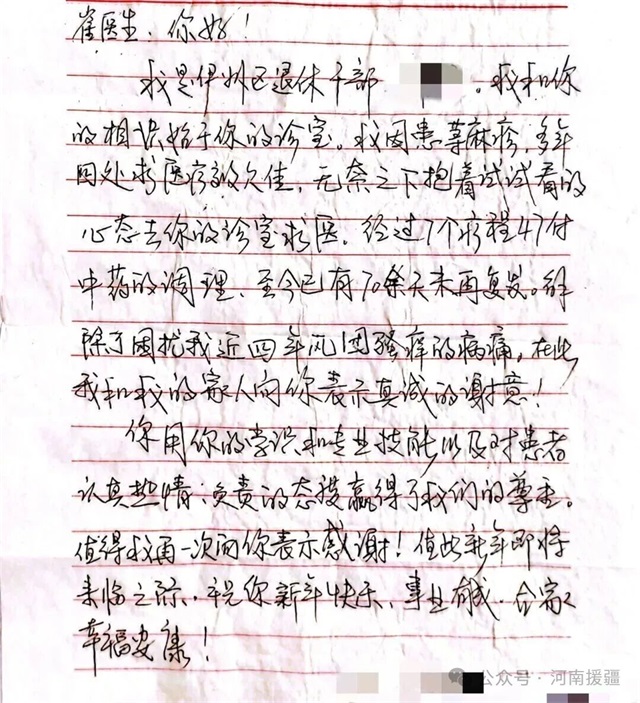 崔医生：你好！
我是伊州区退休干部 。我和你
的相识始于你的诊室。我因患荨麻疹，多年
四处求医疗效欠佳，无奈之下抱着试试看的
心态去你的诊室求医，经过7个疗程47付
中药的调理、至今已有70余天未再复发。解
除了困扰我近四年风团骚痒的病痛，在此
我和我的家人向你表示真诚的谢意！
你用你的学识和专业技能以及对患者
认真热情、负责的态度赢得了我们的尊重。
值得我再一次向你表示感谢！值此新年即将
来临之际，祝你新年快乐、事业有成、合家
幸福安康！
公众号·河南援疆